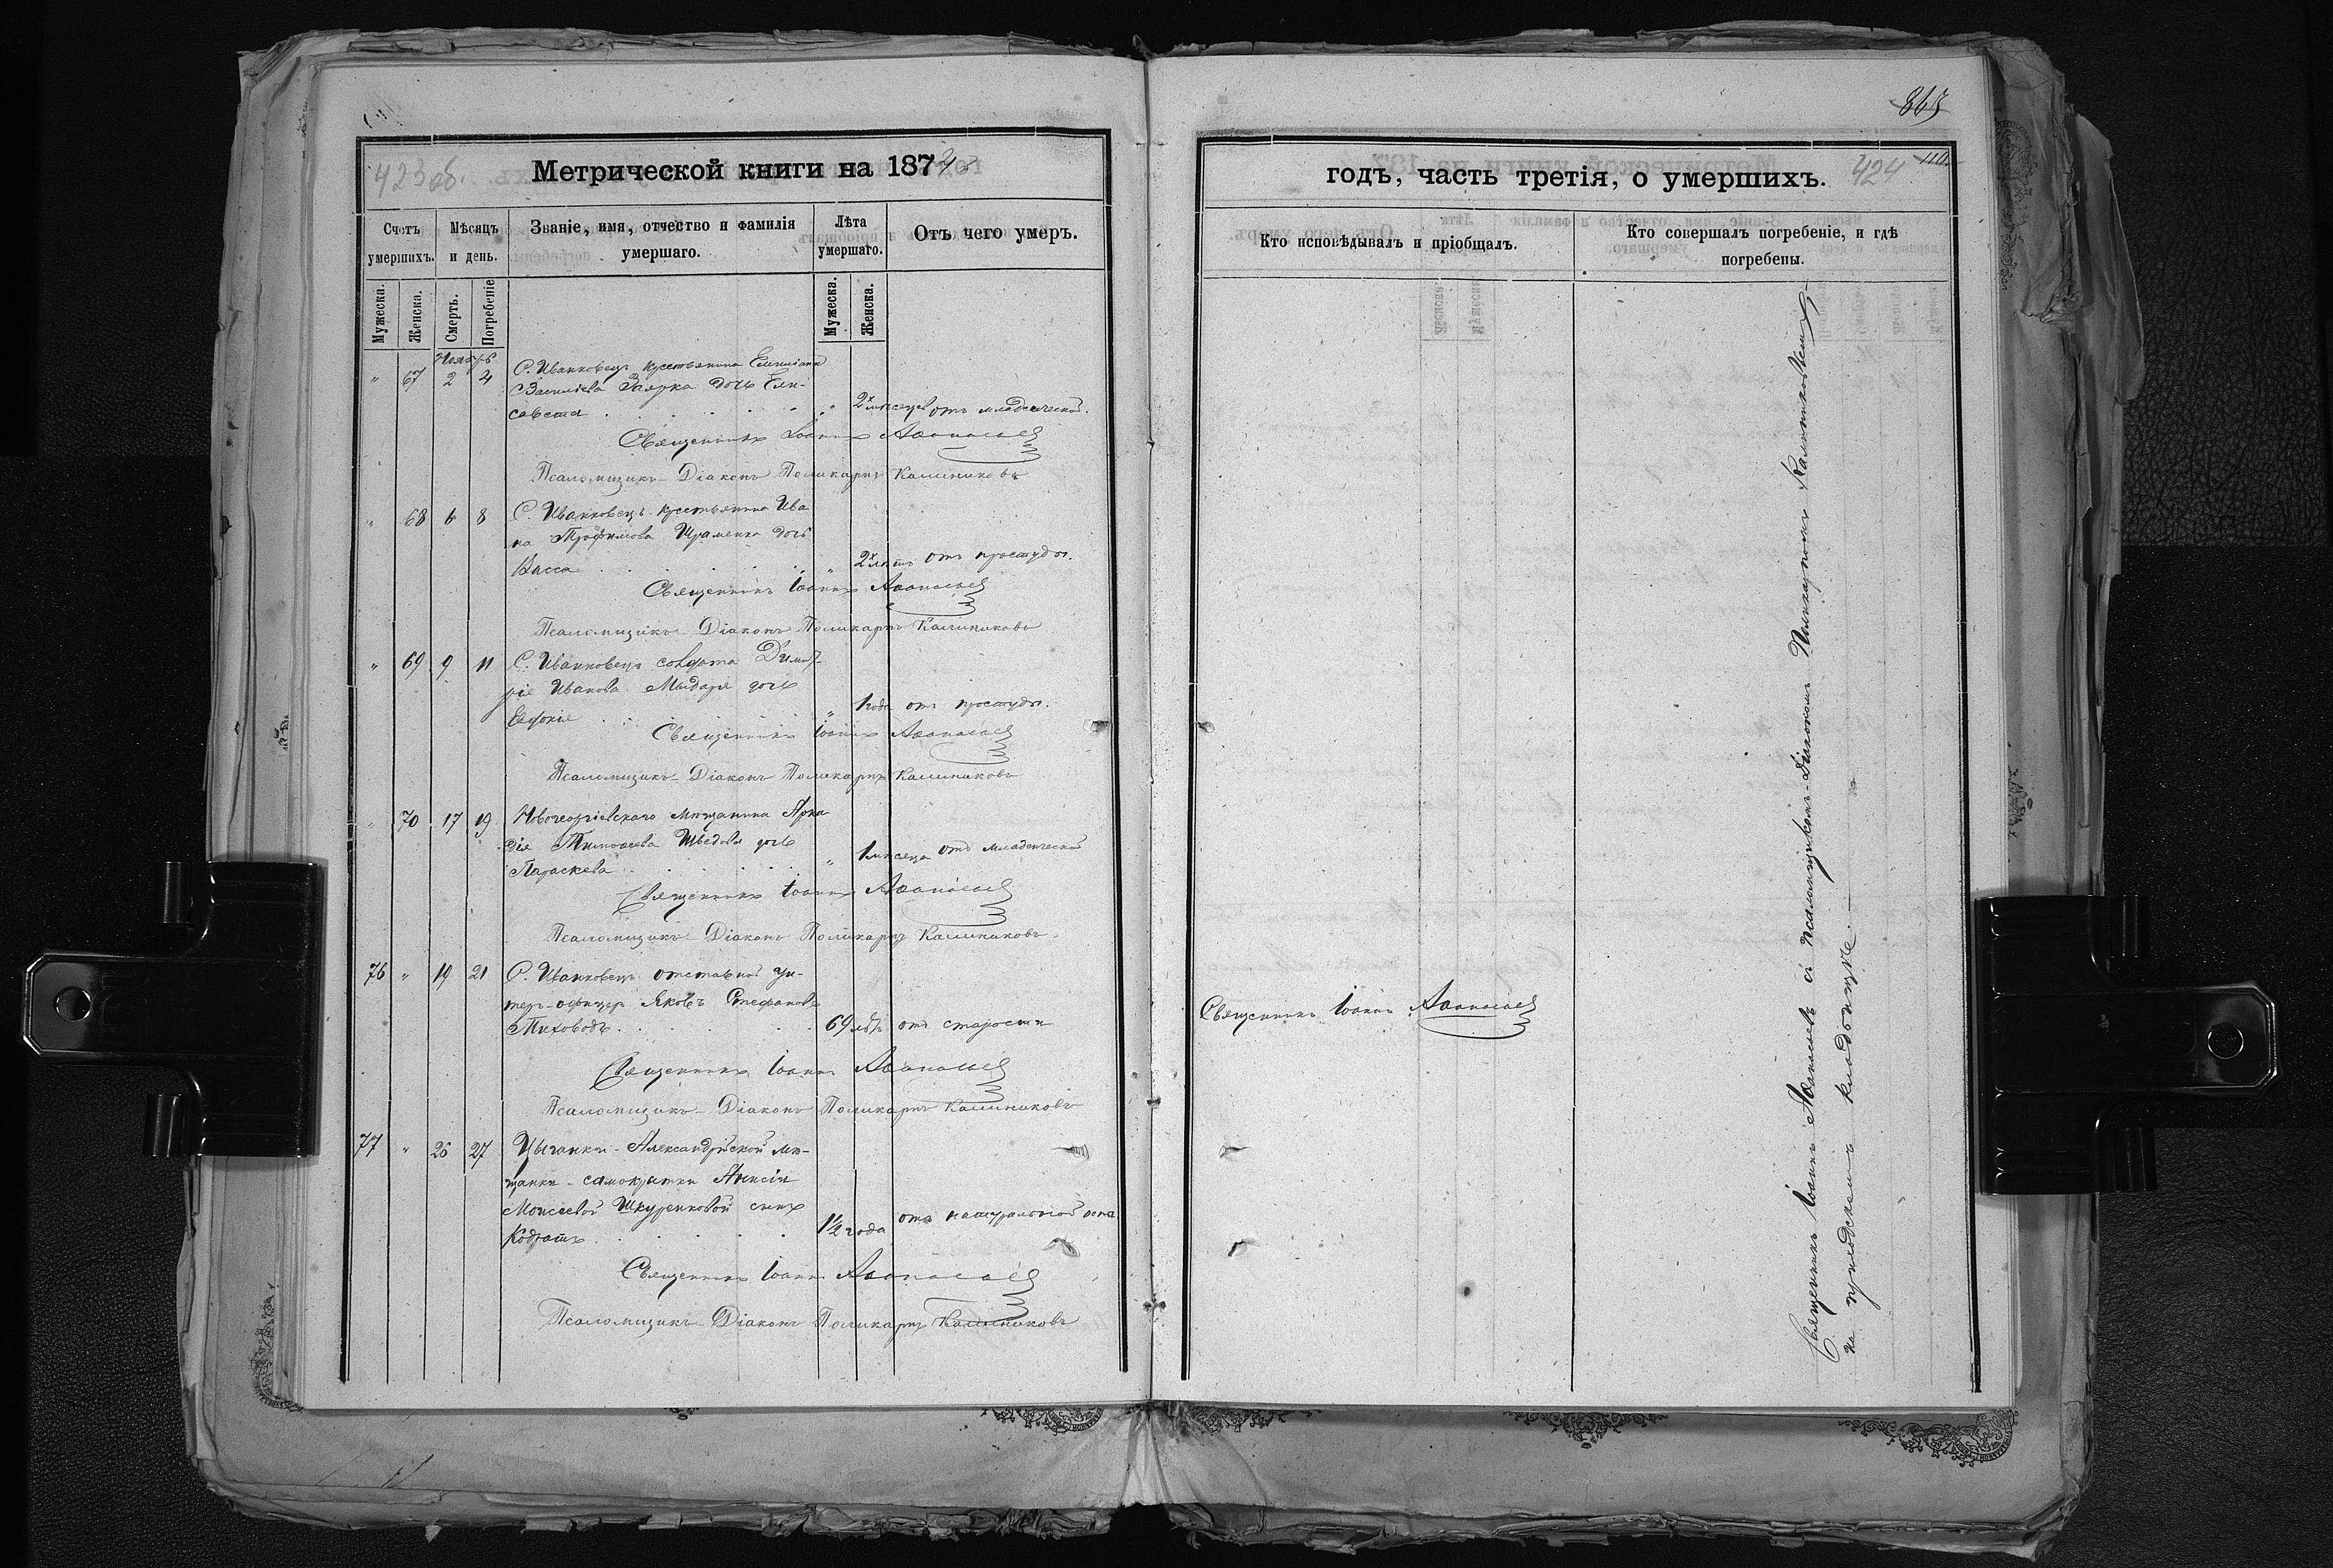 423 об.
Метрической книги на 187
Счетъ умершихъ.
Мѣсяцъ и день.
Званіе, имя, отчество и фамилія умершаго.
Лѣта умершаго.
Отъ чего умеръ.
Мужеска.
Женска.
Смерть.
Погребеніе
Мужеска.
Женска.
Ноябрь
" 67 2 4 С. Иванковецъ крестьянина Емиліана
Василіева дочь Ели-
савета " 2х мѣсяцев отъ младенческой.
Священникъ Іоаннъ Аѳанасьев
Псаломщикъ-Діаконъ Поликарпъ Калиниковъ
" 68 6 8 С. Иванковецъ крестьянина Ива
на Трофимова Шраменка дочь
Васса " 2х лѣтъ отъ простуды.
Священникъ Іоаннъ Аѳанасьев
Псаломщикъ-Діаконъ Поликарпъ Калиниковъ
" 69 9 11 С. Иванковецъ солдата Димит-
рія Иванова дочь
Евдокія " 1 года отъ простуды.
Священникъ Іоаннъ Аѳанасьев
Псаломщикъ-Діаконъ Поликарпъ Калиниковъ
" 70 17 19 Новогеоргіевскаго мѣщанина Арка
дія Тимоѳеева Шведова дочь
Параскева " 1 мѣсяца отъ младенческой
Священникъ Іоаннъ Аѳанасьев
Псаломщикъ-Діаконъ Поликарпъ Калиниковъ
76 " 19 21 С. Иванковецъ отставной ун-
теръ-офицеръ Яковъ Стефановъ
Тиховодъ 69 лѣтъ отъ старости
Священникъ Іоаннъ Аѳанасьев
Псаломщикъ-Діаконъ Поликарпъ Калиниковъ
77 " 26 27 Цыганки-Александрійской мѣ-
щанки-самокрытки Анисіи
Моисеевой Шкуренковой сынъ
Кодратъ 1½ года отъ натуральной оспы
Священникъ Іоаннъ Аѳанасьев
Псаломщикъ-Діаконъ Поликарпъ Калиниковъ
424
110.
годъ, часть третія, о умершихъ.
Кто исповѣдывалъ и пріобщалъ.
Кто совершалъ погребеніе, и гдѣ погребены.
Священникъ Іоаннъ Аѳанасьев
Священникъ Іоаннъ Аѳанасьевъ съ псаломщикомъ-Діакономъ Поликарпомъ Калиниковымъ
на приходскомъ кладбищѣ.